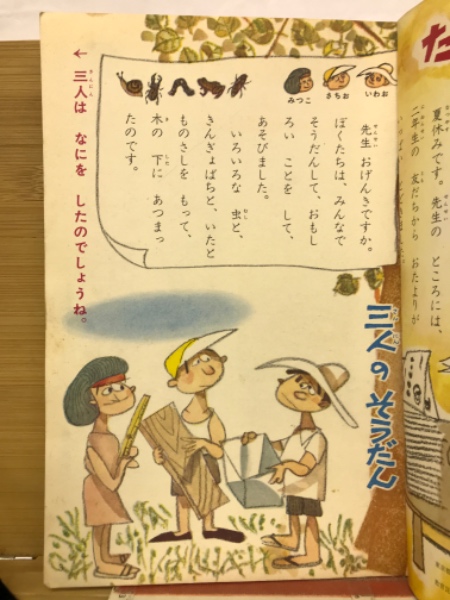 三人の そうだん
いわお
さちお
みつこ
先生 おげんきですか。
ぼくたちは、みんなで
そうだんして、おもし
ろい ことを して、
あそびました。
いろいろな 虫と、
きんぎょばちと、いたと
ものさしを もって、
木の 下に あつまっ
たのです。
← 三人は なにを したのでしょうね。
夏休みです。先生の ところには、
二年生の 友だちから おたよりが